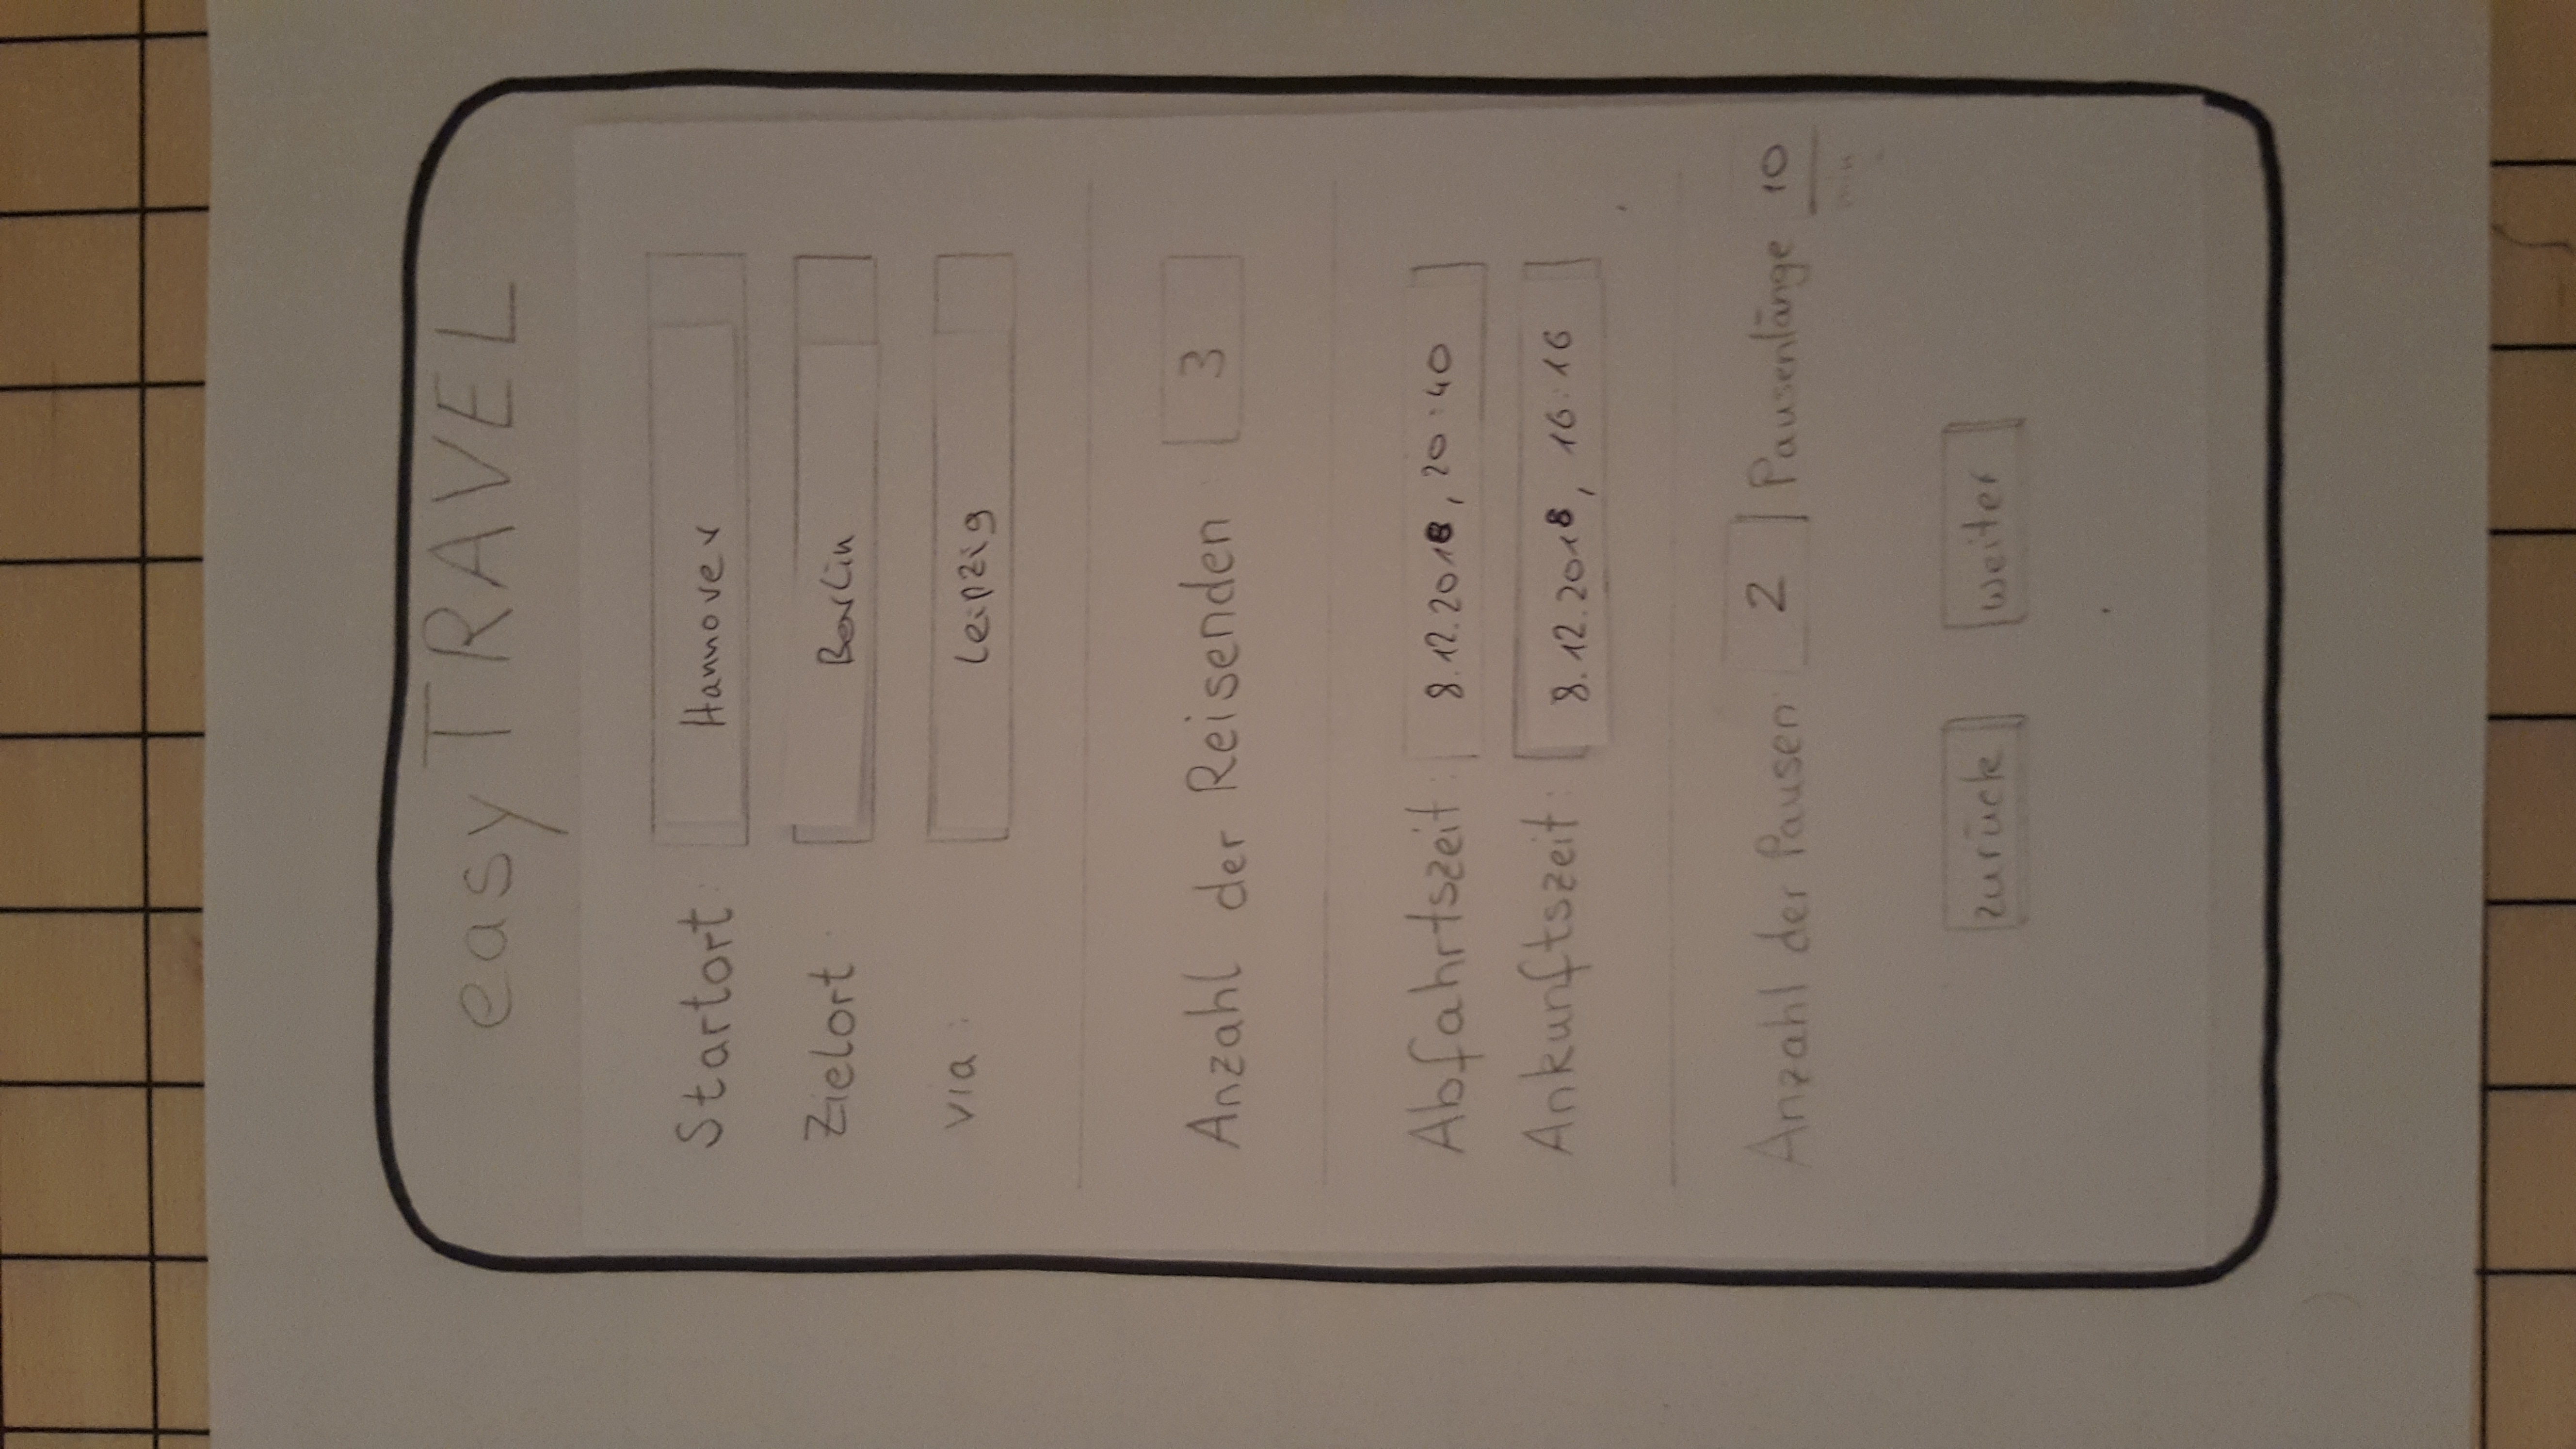 easyTRAVEL
Startort: Hannover
Zielort: Berlin
via: Leipzig
Anzahl der Reisenden: 3
Abfahrtszeit: 8.12.2018, 20:40
Ankunftszeit: 8.12.2018, 16:16
Anzahl der Pausen: 2 Pausenlänge 10
min
zurück weiter